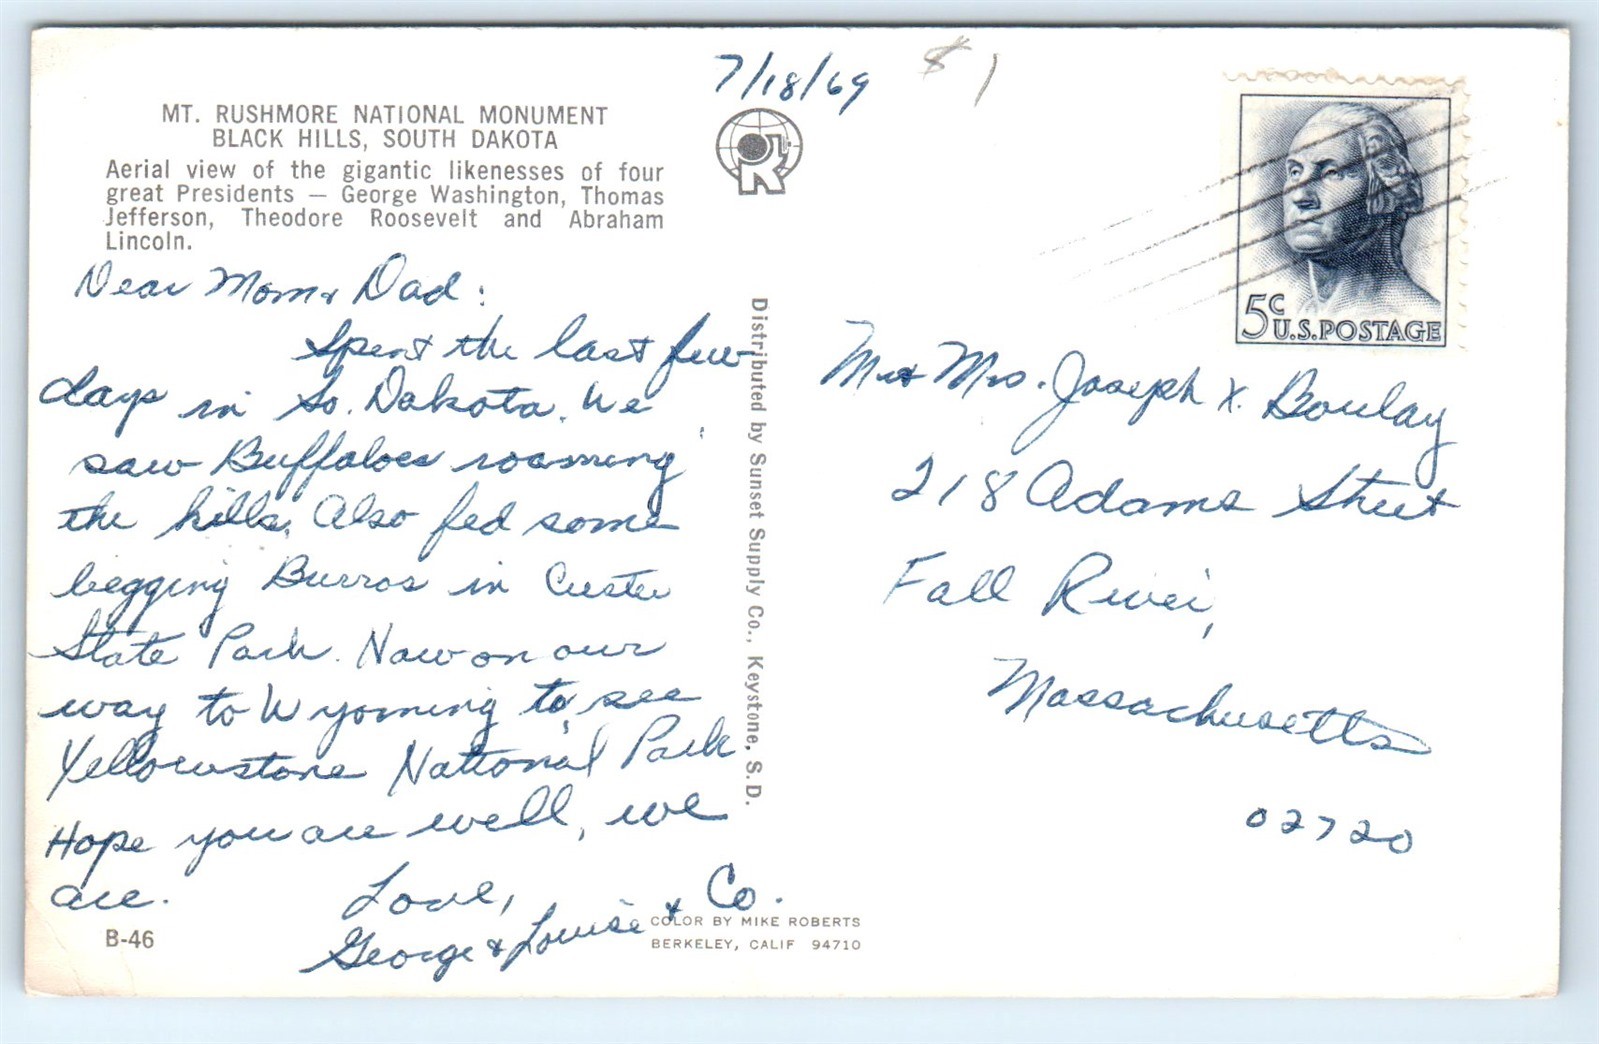 7/18/69
$1
MT. RUSHMORE NATIONAL MONUMENT
BLACK HILLS, SOUTH DAKOTA
Aerial view of the gigantic likenesses of four
great Presidents — George Washington, Thomas
Jefferson, Theodore Roosevelt and Abraham
Lincoln.
Dear Mom & Dad:
Spent the last few
days in So. Dakota. We
saw Buffaloes roaming
the hills. Also fed some
begging Burros in Custer
State Park. Now on our
way to Wyoming to see
Yellowstone National Park
Hope you are well, we
are.
Love,
George & Louise & Co.
B-46
Distributed by Sunset Supply Co., Keystone, S.D.
COLOR BY MIKE ROBERTS
BERKELEY, CALIF 94710
5c
U.S. POSTAGE
M & Mrs. Joseph X. Boulay
218 Adams Street
Fall River,
Massachusetts
02720